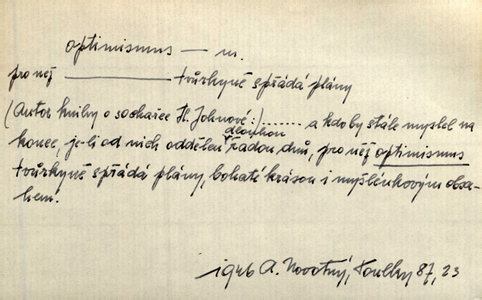 optimismus — m.
pro nějž ———— tvůrkyně spřádá plány
(Autor knihy o sochařce H. Johnové:) ....... a kdo by stále myslel na
konec, je-li od nich oddělen dlouhou řadou dnů, pro něž optimismus
tvůrkyně spřádá plány, bohaté krásou i myšlenkovým obsa-
hem.
1946 A. Novotný, Toulky 87, 23